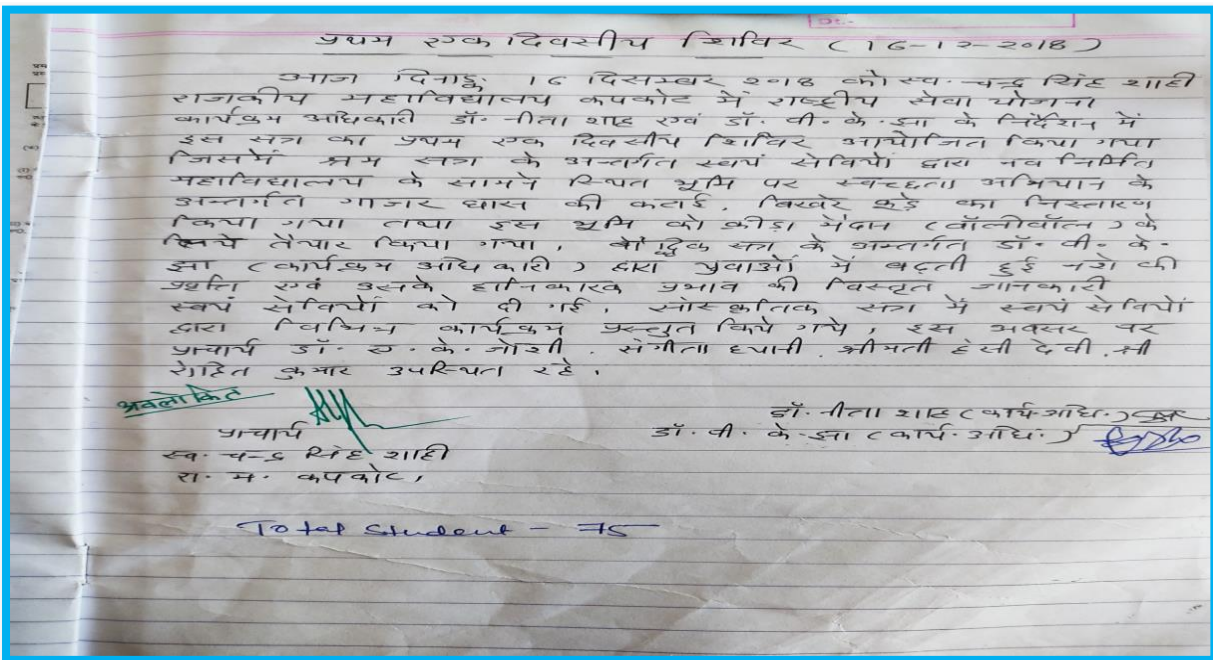 प्रथम एक दिवसीय शिविर (16-12-2018)
आज दिनाङ्क 16 दिसम्बर 2018 को स्व. चन्द्र सिंह शाही
राजकीय महाविद्यालय कपकोट में राष्ट्रीय सेवा योजना
कार्यक्रम अधिकारी डॉ. नीता शाह एवं डॉ. वी. के. झा के निर्देशन में
इस सत्र का प्रथम एक दिवसीय शिविर आयोजित किया गया
जिसमें श्रम सत्र के अन्तर्गत स्वयं सेवियों द्वारा नव निर्मित
महाविद्यालय के सामने स्थित भूमि पर स्वच्छता अभियान के
अन्तर्गत गाजर घास की कटाई, बिखरे कूड़े का निस्तारण
किया गया तथा इस भूमि को क्रीड़ा मैदान (वॉलीवॉल) के
लिये तैयार किया गया, बौद्धिक सत्र के अन्तर्गत डॉ. वी. के.
झा (कार्यक्रम अधिकारी) द्वारा युवाओं में बढ़ती हुई नशे की
प्रवृति एवं उसके हानिकारक प्रभाव की विस्तृत जानकारी
स्वयं सेवियों को दी गई, सांस्कृतिक सत्र में स्वयं सेवियों
द्वारा विभिन्न कार्यक्रम प्रस्तुत किये गये, इस अवसर पर
प्राचार्य डॉ. ए. के. जोशी, संगीता ध्यानी, श्रीमती हंसी देवी, श्री
रोहित कुमार उपस्थित रहे,
अवलोकित
डॉ. नीता शाह (कार्य. अधि.)
प्राचार्य
डॉ. वी. के. झा (कार्य. अधि.)
स्व. चन्द्र सिंह शाही
रा. म. कपकोट,
Total Student - 75